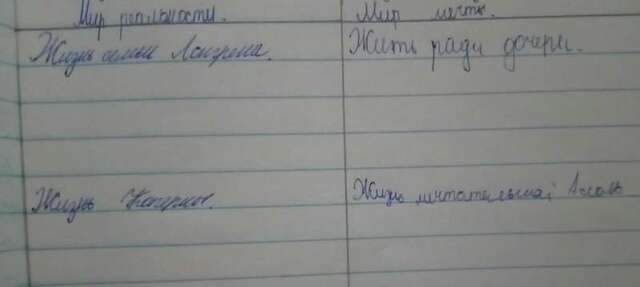 Мир реальности. Мир мечты.
Жизнь семьи Лонгрена. Жить ради дочери.
Жизнь Каперны. Жизнь мечтательная; Ассоль